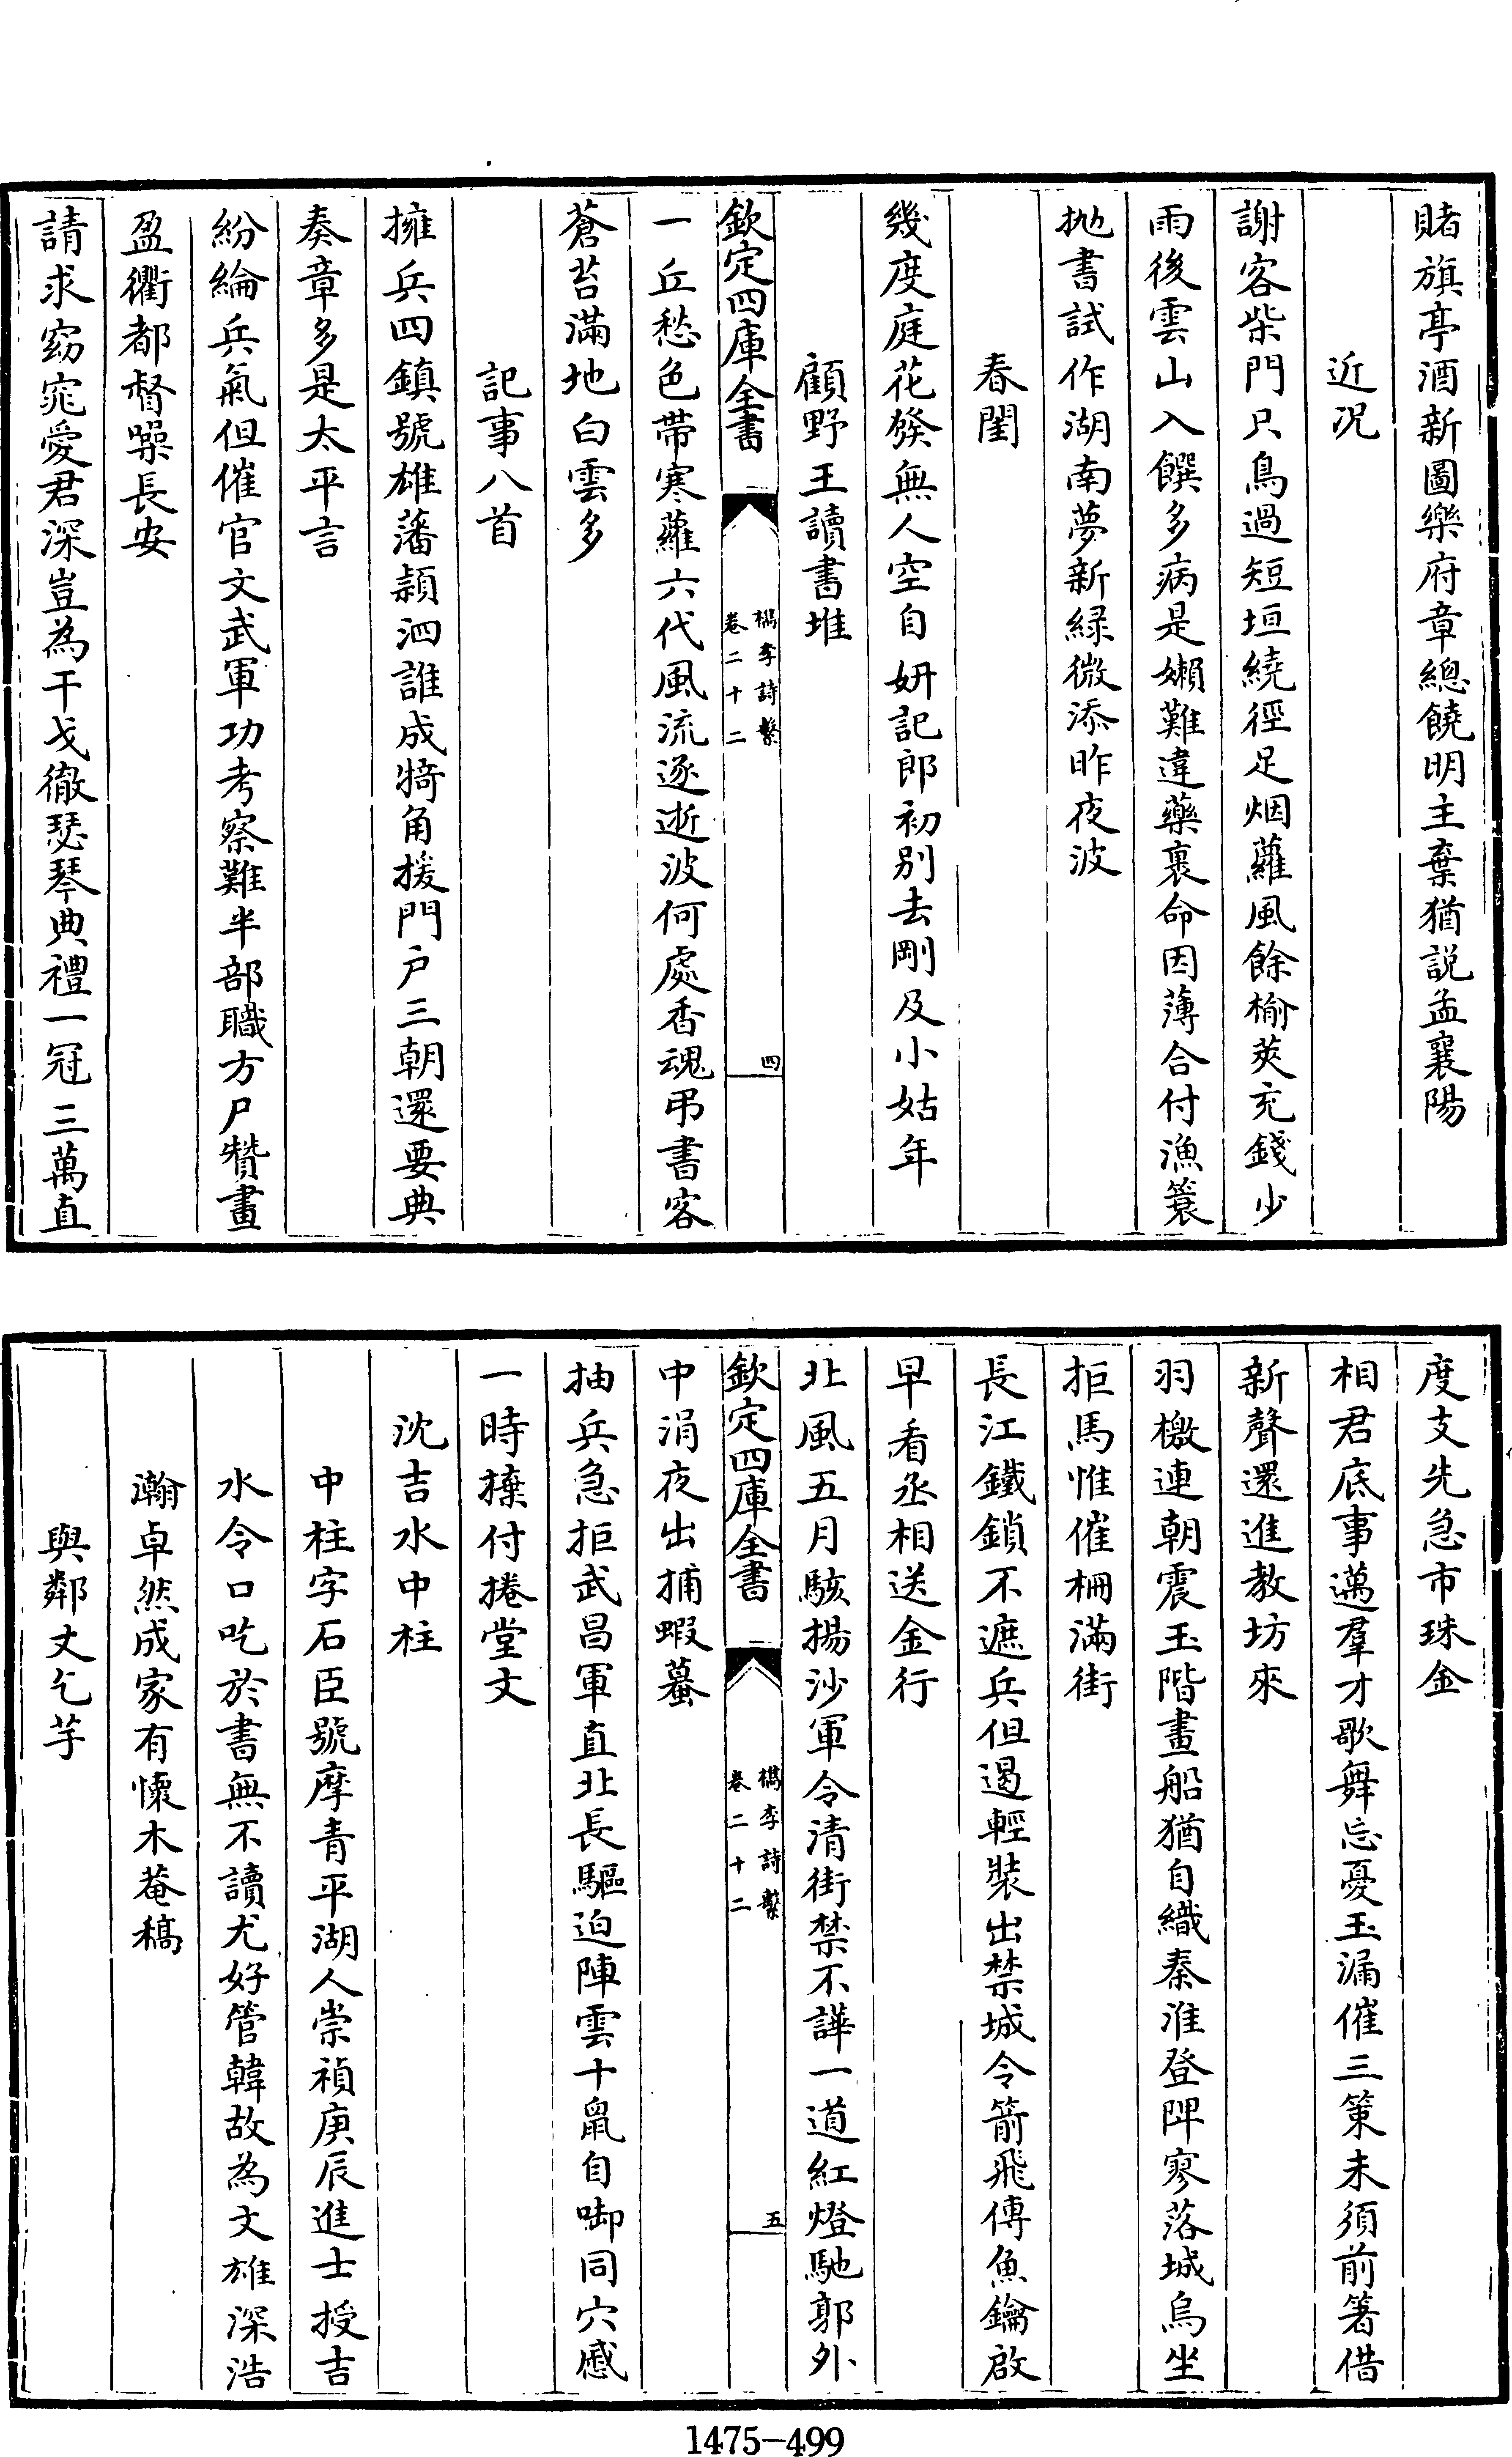 賭旗亭酒新圖樂府章總饒明主棄猶説孟襄陽
近况
謝客柴門只鳥過短垣繞徑足烟蘿風餘榆莢充錢少
雨後雲山入饌多病是嬾難違藥裹命因薄合付漁簑
抛書試作湖南夢新緑微添昨夜波
春閨
幾度庭花發無人空自妍記郎初别去剛及小姑年
顧野王讀書堆
欽定四庫全書
檇李詩繫
卷二十二
四
一丘愁色帶寒蘿六代風流逐逝波何處香魂弔書客
蒼苔滿地白雲多
記事八首
擁兵四鎮號雄藩頴泗誰成犄角援門户三朝還要典
奏章多是太平言
紛綸兵氣但催官文武軍功考察難半部職方尸贊畫
盈衢都督噪長安
請求窈窕愛君深豈為干戈徹瑟琴典禮一冠三萬直
度支先急市珠金
相君底事邁羣才歌舞忘憂玉漏催三策未須前箸借
新聲還進教坊來
羽檄連朝震玉階畫船猶自織秦淮登陴寥落城烏坐
拒馬惟催柵滿街
長江鐵鎖不遮兵但遏輕裝出禁城令箭飛傳魚鑰啟
早看丞相送金行
北風五月駭揚沙軍令清街禁不譁一道紅燈馳郭外
欽定四庫全書
檇李詩繫
卷二十二
五
中涓夜出捕蝦蟇
抽兵急拒武昌軍直北長驅迫陣雲十鼠自啣同穴慼
一時擁付捲堂文
沈吉水中柱
中柱字石臣號摩青平湖人崇禎庚辰進士授吉
水令口吃於書無不讀尤好管韓故為文雄深浩
瀚卓然成家有懷木菴稿
與鄰丈乞芋
1475-499